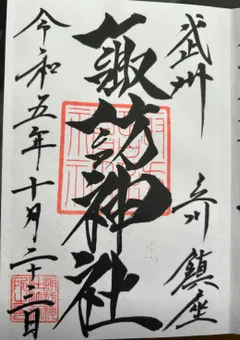 武州 立川 鎮座
諏訪神社
令和五年十月二十二日